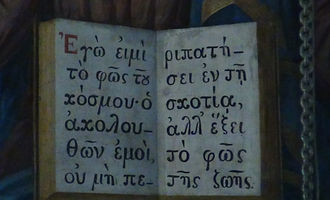 Ἐγὼ εἰμί
τὸ φῶς τȣ
κόσμου· ὁ
ἀκολου-
θῶν ἐμοί,
οὐ μὴ πε-
ριπατή-
σει ἐν τῇ
σκοτίᾳ,
ἀλλ' ἕξει
τὸ φῶς
τῆς ζωῆς.